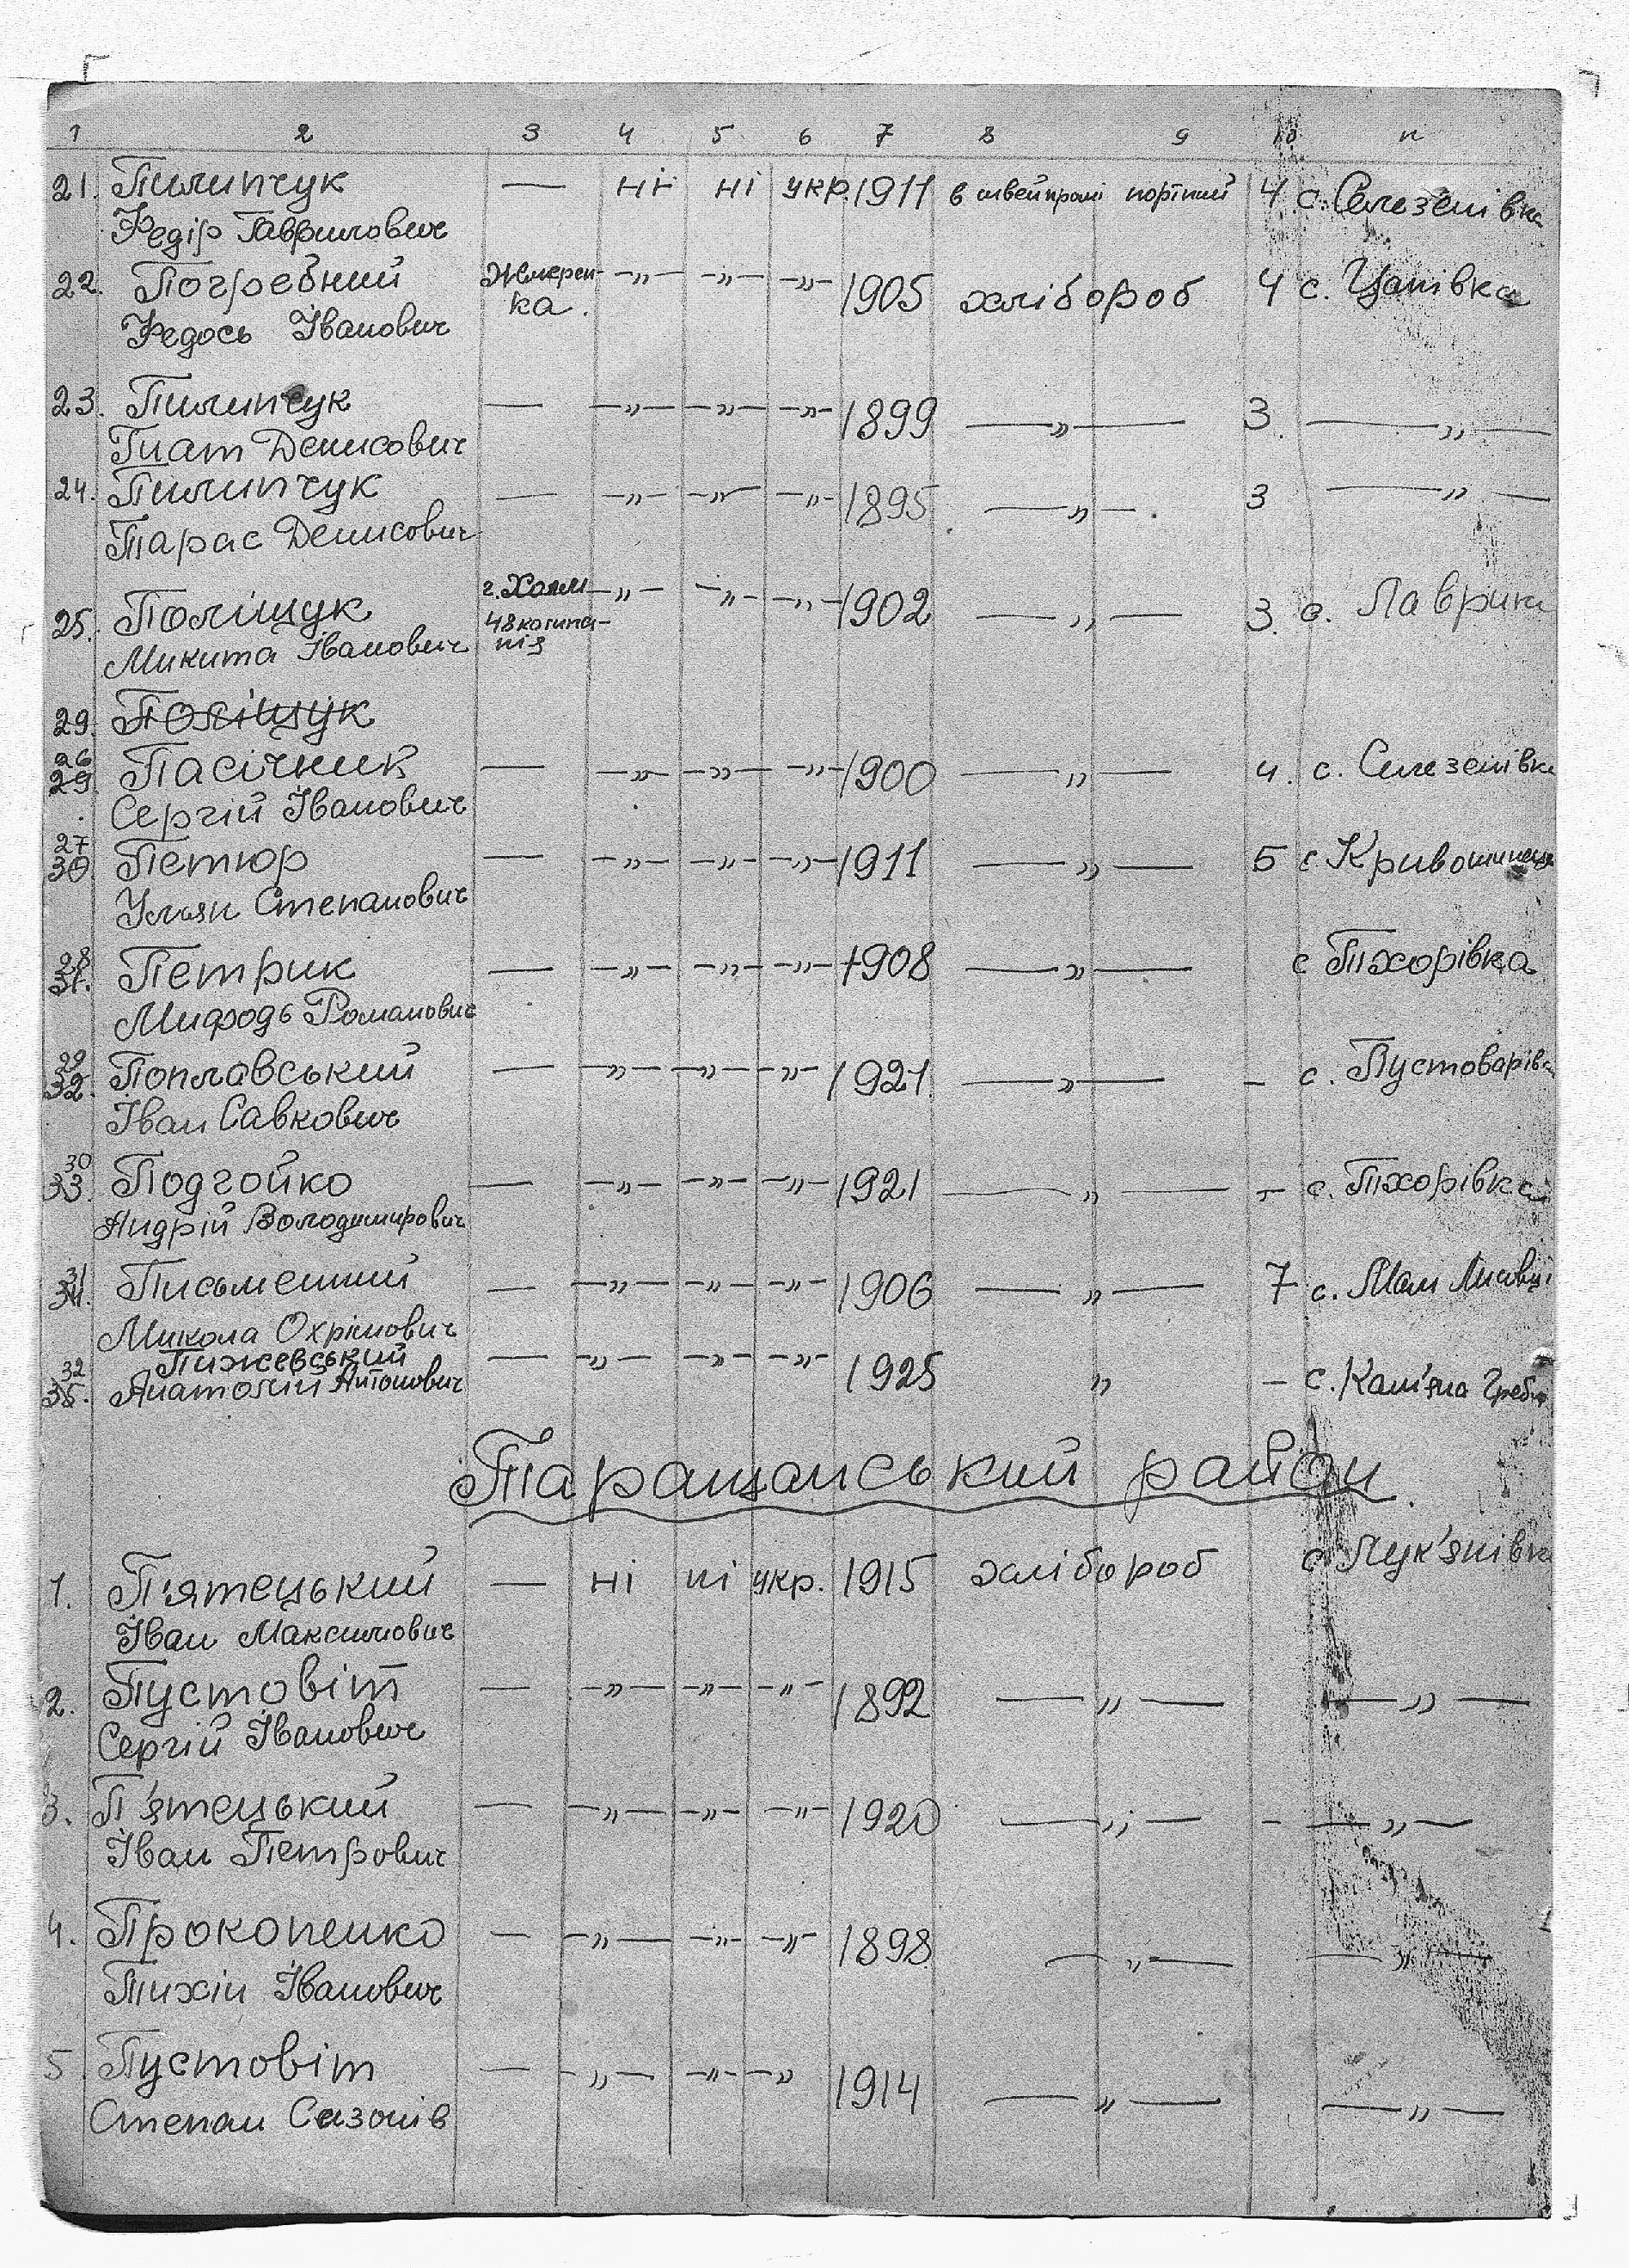 1 2 3 4 5 6 7 8 9 10 11
21. Пилипчук — ні ні укр. 1911 в швейпромі портний 4 с. Селезенівка
Федір Гаврилович
22. Погребний Жмерен- —„— —„— —„— 1905 хлібороб 4 с. Цапівка
Федось Іванович ка.
23. Пилипчук — —„— —„— —„— 1899 —„— 3. —„—
Гнат Денисович
24. Пилипчук — —„— —„— —„— 1895 —„— 3 —„—
Тарас Денисович
25. Поліщук г. Холм —„— —„— —„— 1902 —„— 3. с. Лаврики
Микита Іванович 48 компа-
нія
29. Поліщук
26 29. Пасічник — —„— —„— —„— 1900 —„— 4. с. Селезенівка
Сергій Іванович
27 30 Петюр — —„— —„— —„— 1911 —„— 5 с Кривошиинці
Улян Степанович
28 31. Петрик — —„— —„— —„— 1908 —„— с Тхорівка
Мифодь Романович
29 32. Поплавський — —„— —„— —„— 1921 —„— – с. Пустоварівка
Іван Савкович
30 33. Подгойко — —„— —„— —„— 1921 —„— – с. Тхорівка
Андрій Володимирович
31 34. Письменний — —„— —„— —„— 1906 —„— 7 с. Мали Лисовці
Микола Охрімович
Пижевський — —„— —„— —„— 1925 „ – с. Кам'яна Гребля
32 35. Анатолій Антонович
Таращанський район.
1. П'ятецький — ні ні укр. 1915 хлібороб с Лук'янівка
Іван Максимович
2. Пустовіт — —„— —„— —„— 1892 —„— —„—
Сергій Іванович
3. П'ятецький — —„— —„— —„— 1920 —„— – —„—
Іван Петрович
4. Прокопенко — —„— —„— —„— 1898 —„— —„—
Тихін Іванович
5 Пустовіт — —„— —„— —„ 1914 —„— —„—
Степан Сазонів